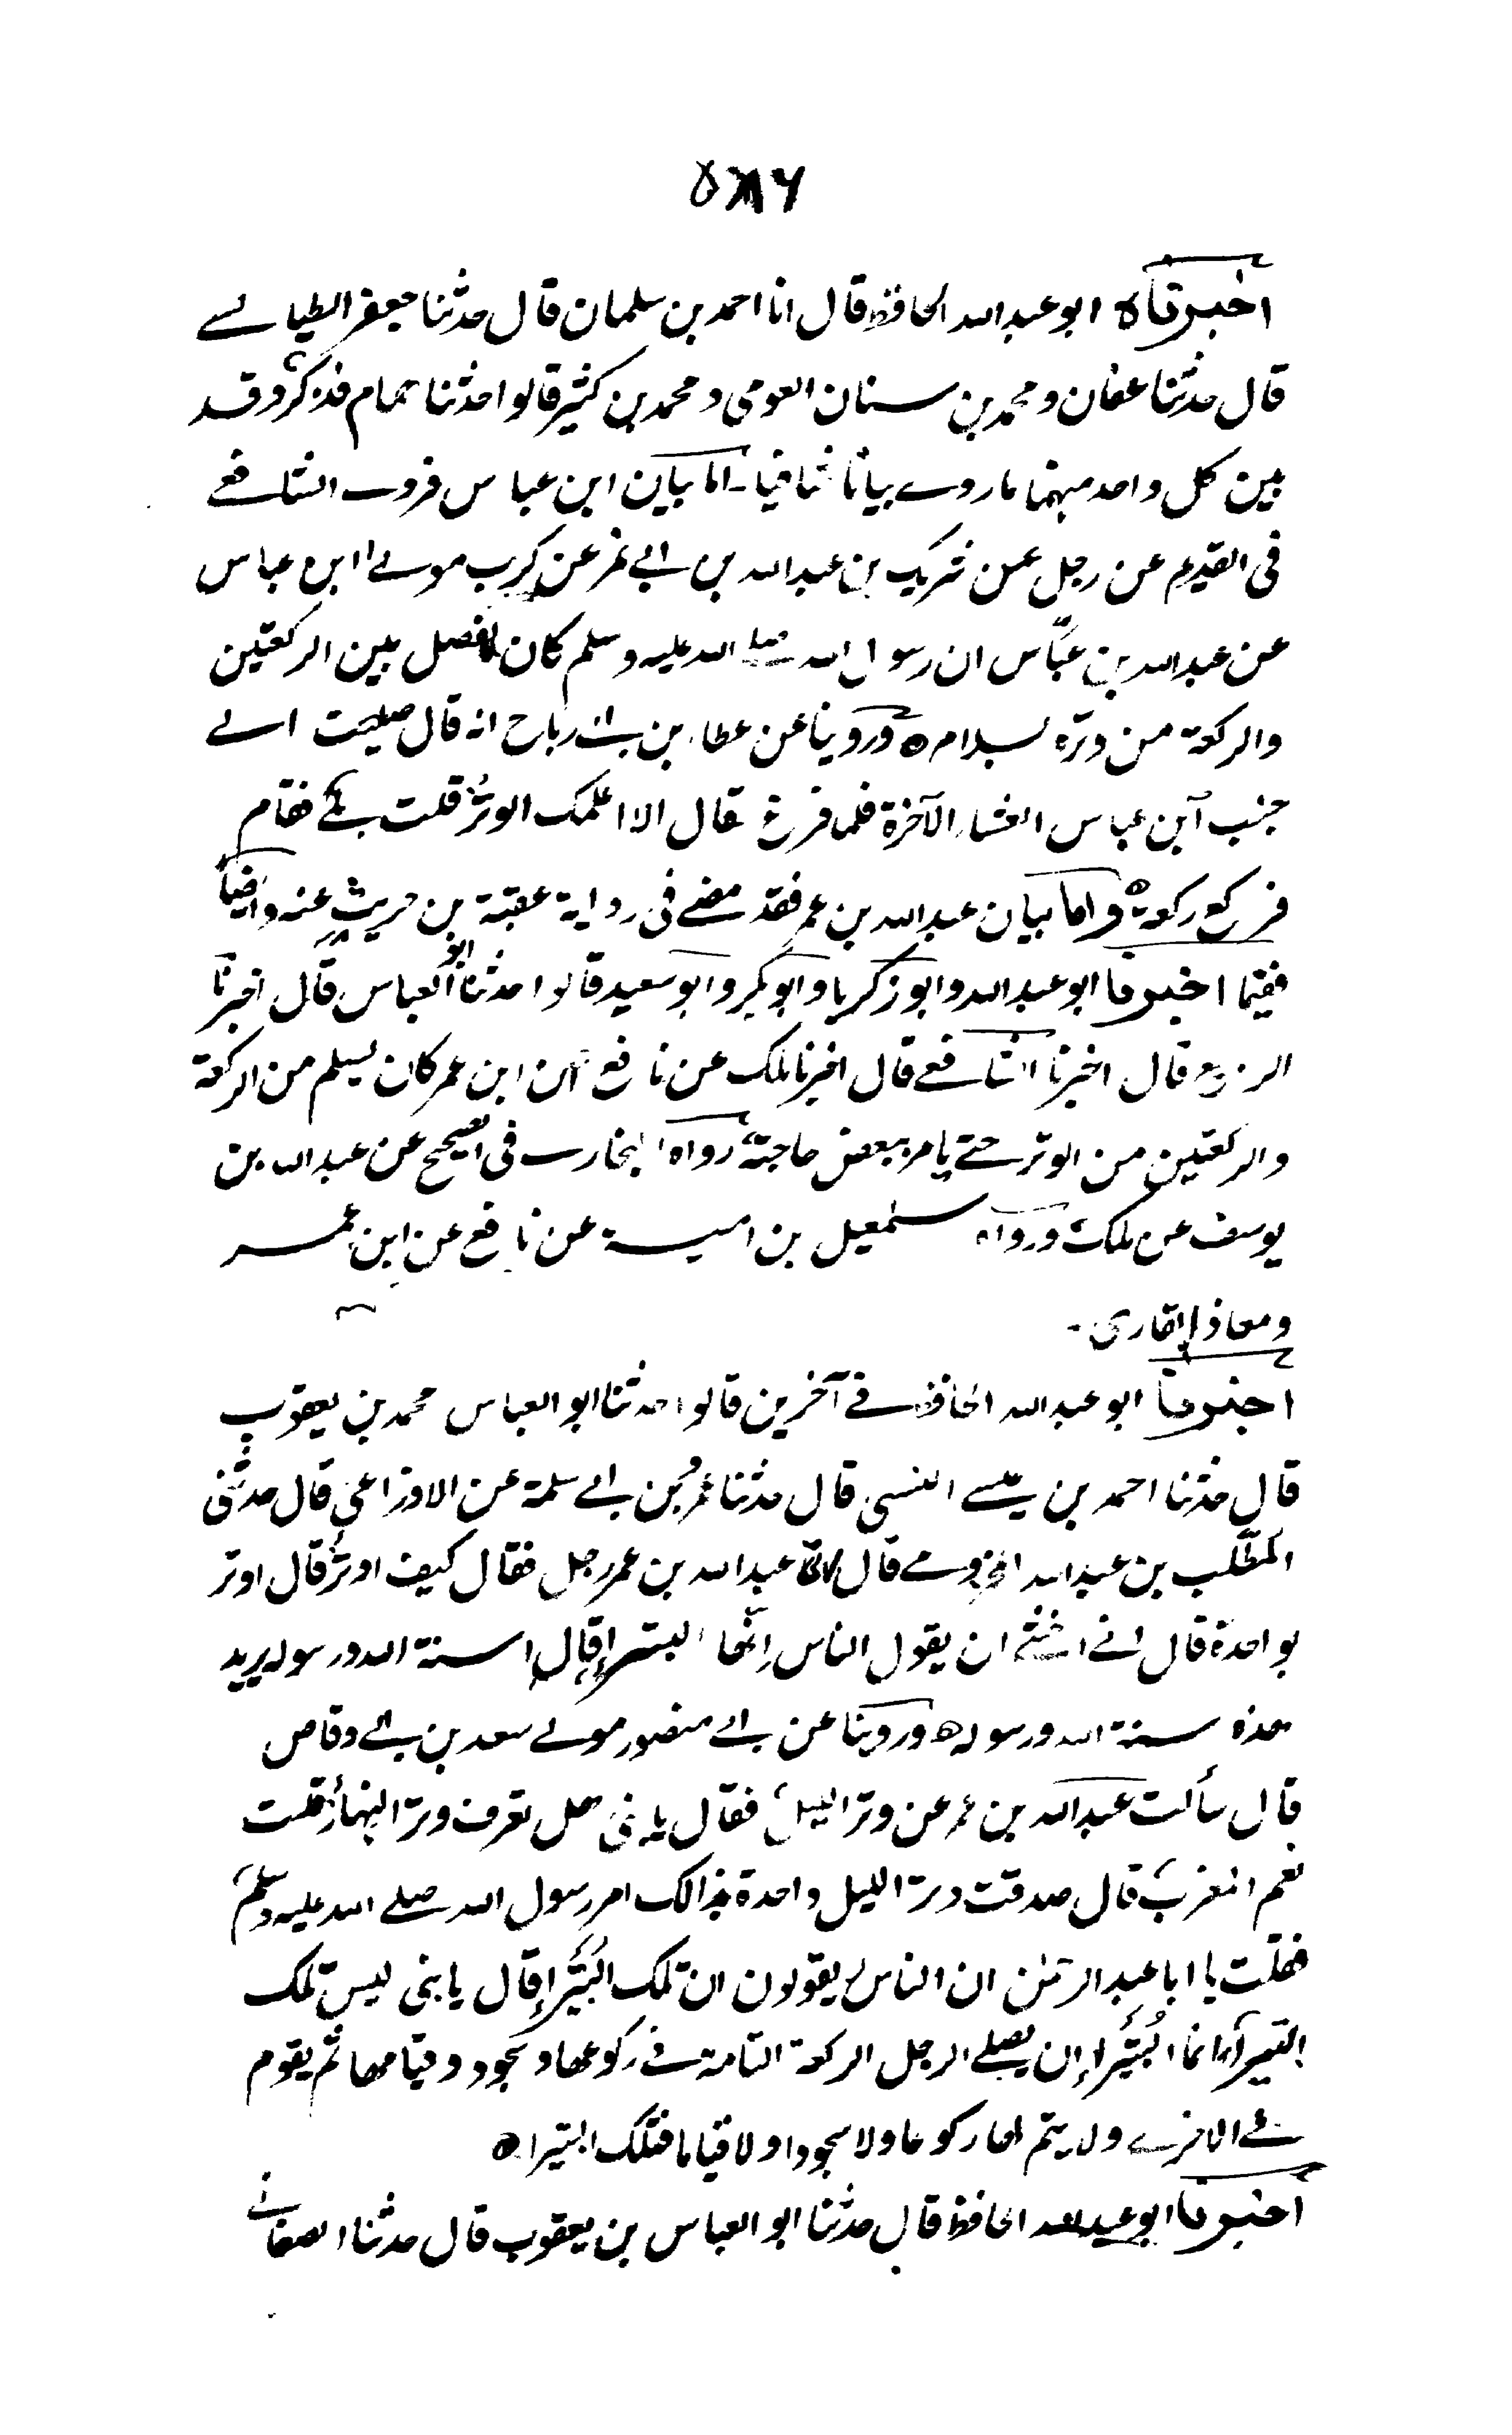 اخبرناه ابو عبد الله الحافظ قال انا احمد بن سلمان قال حدثنا جعفر الطيالسے
قال حدثنا عفان و محمد بن سنان العوقى و محمد بن كثير قالوا حدثنا همام فذكره وقد
بين كل واحد منهما ما روے بيانا شافيا۔ اما بيان ابن عباس فروے الشافعے
فى القديم عن رجل عن شريك بن عبد الله بن ابے نمر عن كريب مولے ابن عباس
عن عبد الله بن عباس ان رسول الله صلے الله عليه وسلم كان يفصل بين الركعتين
والركعة من وتره بسلام ه وروينا عن عطاء بن ابے رباح انه قال صليت الے
جنب ابن عباس العشاء الآخرة فلما فرغ قال الا اعلمك الوتر قلت بلے فقام
فركع ركعة ه واما بيان عبد الله بن عمر فقد مضے فى رواية عقبة بن حريث عنه وايضا
ففيما اخبرنا ابو عبد الله وابو زكريا وابو بكر وابو سعيد قالوا حدثنا ابو العباس قال اخبرنا
الربيع قال اخبرنا الشافعے قال اخبرنا ملك عن نافع ان ابن عمر كان يسلم من الركعة
والركعتين من الوتر حتے يامر ببعض حاجته رواه البخارے فى الصحيح عن عبد الله بن
يوسف عن ملك ورواه اسمعيل بن امية عن نافع عن ابن عمر
ومعاذ القارى۔
اخبرنا ابو عبد الله الحافظ فے آخرين قالوا حدثنا ابو العباس محمد بن يعقوب
قال حدثنا احمد بن عيسے التنيسى قال حدثنا عمرو بن ابے سلمة عن الاوزاعى قال حدثنى
المطلب بن عبد الله المخزومے قال اتے عبد الله بن عمر رجل فقال كيف اوتر قال اوتر
بواحدة قال انے اخشے ان يقول الناس انها البتيراء قال اسنة الله ورسوله يريد
هذه سنة الله ورسوله ه وروينا عن ابے منصور مولے سعد بن ابے وقاص
قال سألت عبد الله بن عمر عن وتر الليل فقال يا بنى هل تعرف وتر النهار قلت
نعم المغرب قال صدقت وتر الليل واحدة بذالك امر رسول الله صلے الله عليه وسلم
فقلت يا ابا عبد الرحمن ان الناس يقولون ان تلك البتيراء قال يا بنى ليس تلك
البتيراء انما البتيراء ان يصلے الرجل الركعة التامة فے ركوعها وسجود وقيامها ثم يقوم
فے الاخرے ولا يتم لها ركوعا ولا سجودا ولا قياما فتلك البتيراء ه
اخبرنا ابو عبد الله الحافظ قال حدثنا ابو العباس بن يعقوب قال حدثنا الصغانے